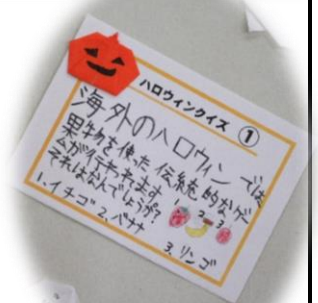 ハロウィンクイズ ①
海外のハロウィンでは
果物を使った伝統的なゲー
ムが行われます
それはなんでしょうか?
1 2 3
1.イチゴ 2.バナナ
3.リンゴ